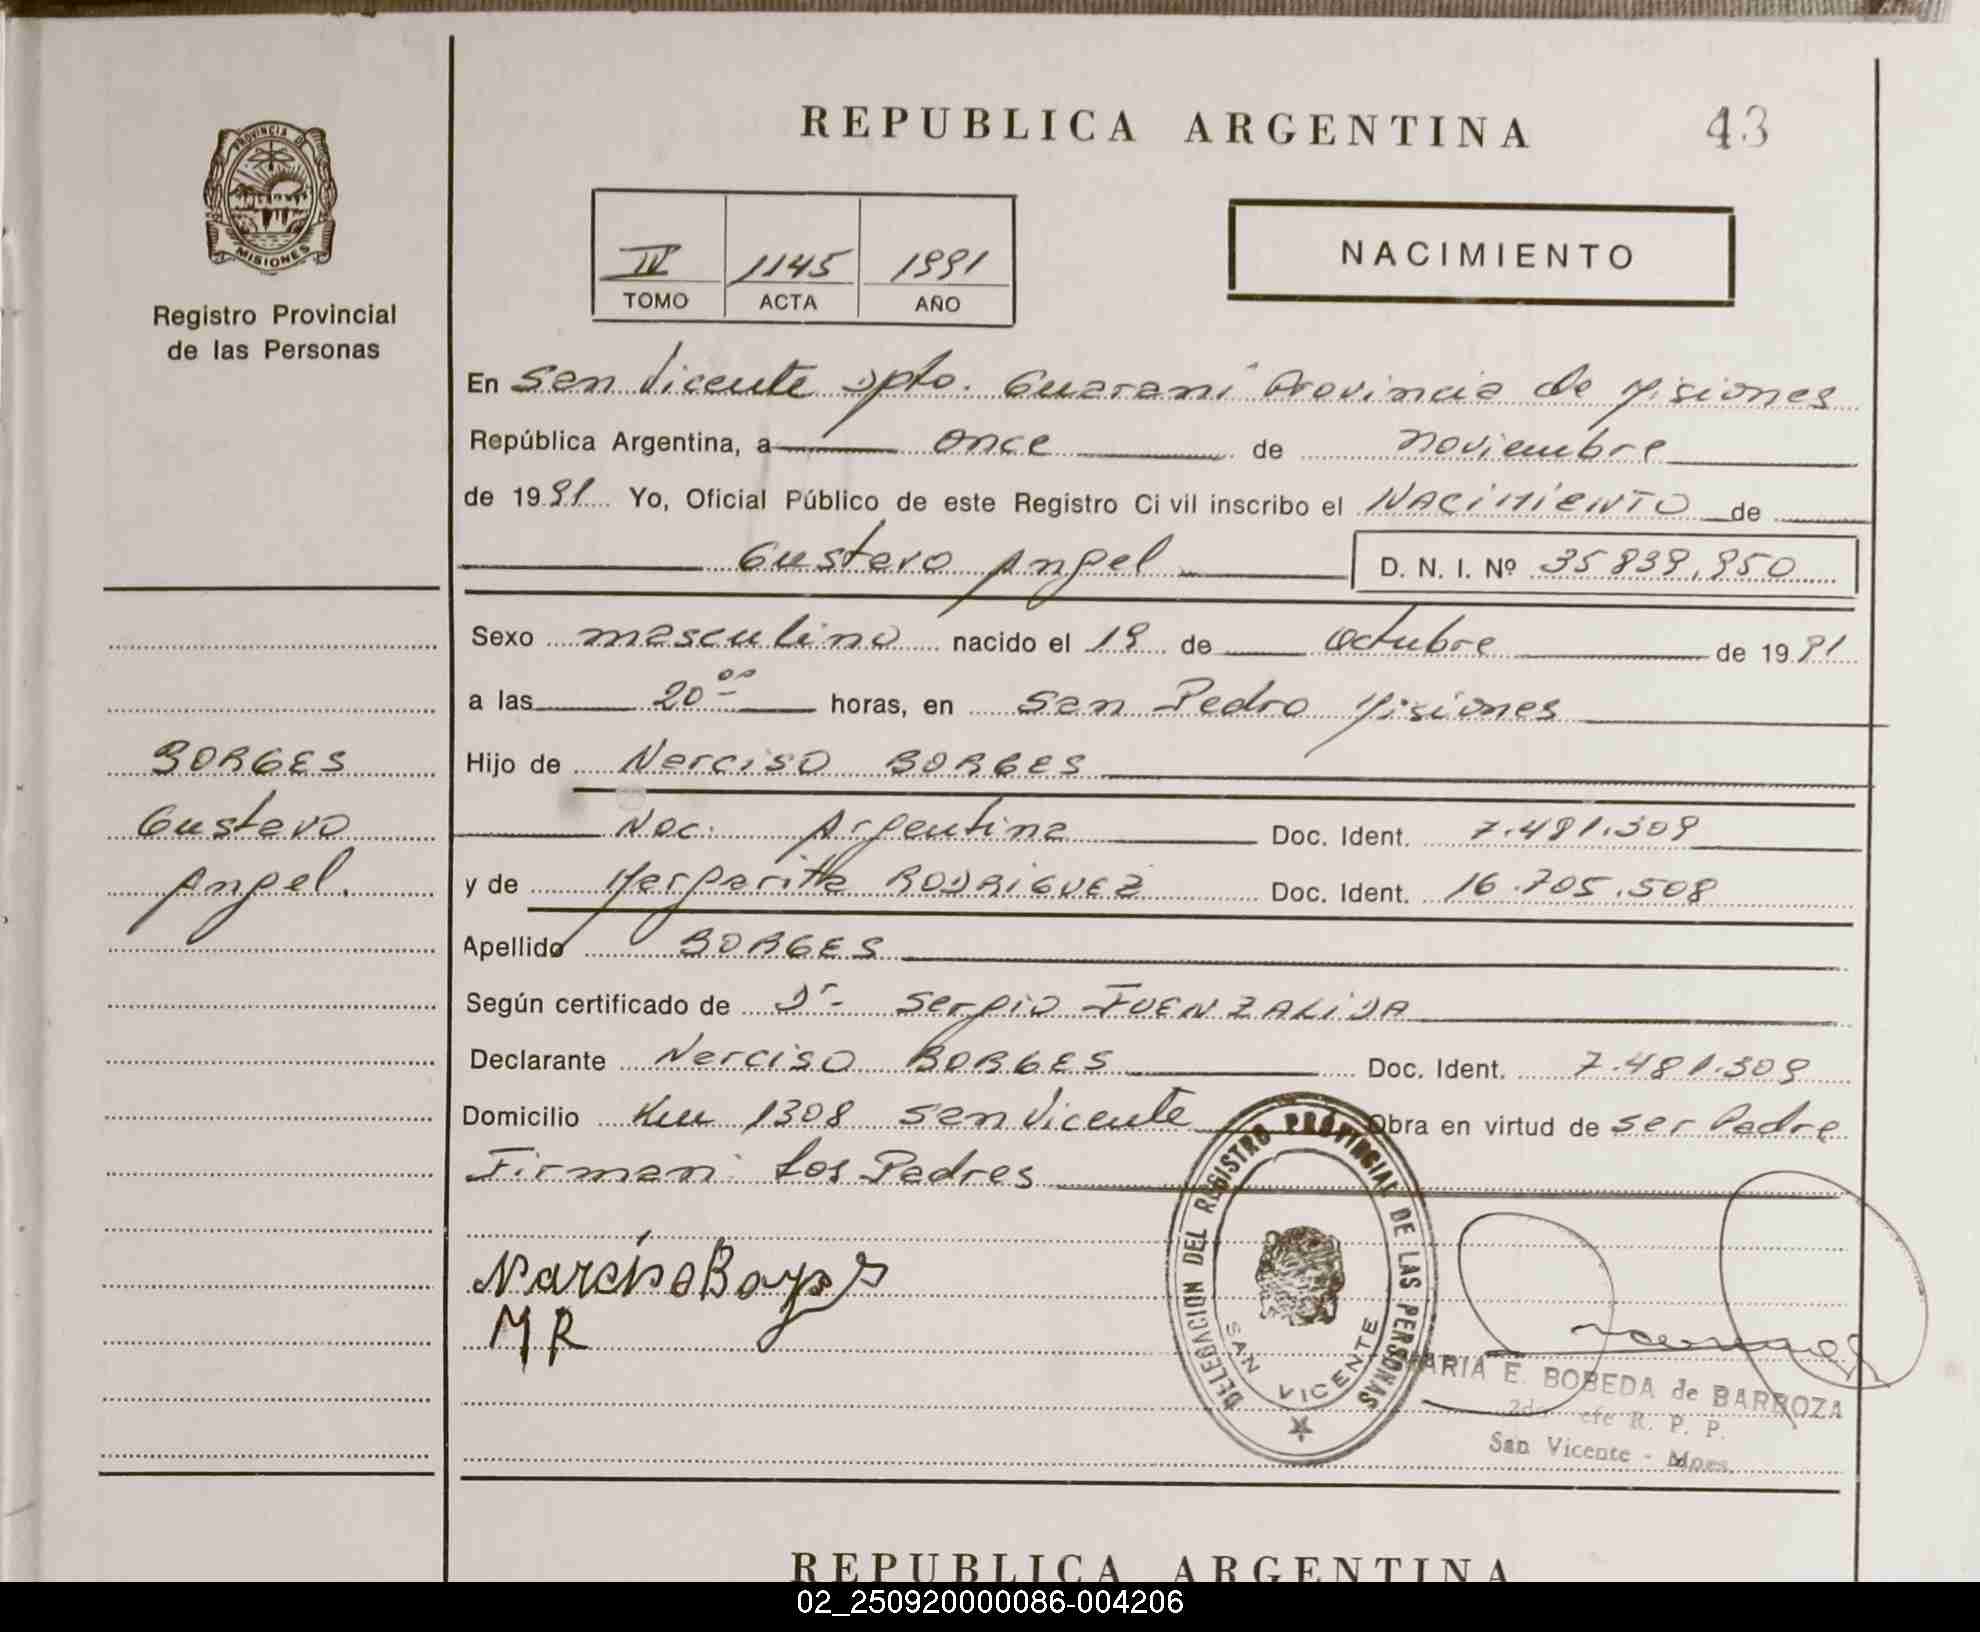 REPUBLICA ARGENTINA
43
PROVINCIA DE
MISIONES
Registro Provincial
de las Personas
IV 1145 1991
TOMO ACTA AÑO
NACIMIENTO
En San Vicente Dpto. Guarani Provincia de Misiones
República Argentina, a once de noviembre
de 1991 Yo, Oficial Público de este Registro Civil inscribo el NACIMIENTO de
Gustavo Angel D. N. I. Nº 35839,950
Sexo masculino nacido el 19 de octubre de 1991
a las 20 00 horas, en San Pedro Misiones
BORGES
Gustavo
Angel.
Hijo de Narciso BORGES
Nac. Argentina Doc. Ident. 7.481.309
y de Margarita RODRIGUEZ Doc. Ident. 16.705.508
Apellido BORGES
Según certificado de Dr- Sergio FUENZALIDA
Declarante Narciso BORGES Doc. Ident. 7.481.309
Domicilio Km 1308 San Vicente Obra en virtud de ser Padre
Firman: Los Padres
Narciso Borges
M R
DELEGACION DEL REGISTRO PROVINCIAL DE LAS PERSONAS
SAN VICENTE
MARIA E. BOBEDA de BARBOZA
2do efe R. P. P.
San Vicente - Mnes.
REPUBLICA ARGENTINA
02_250920000086-004206